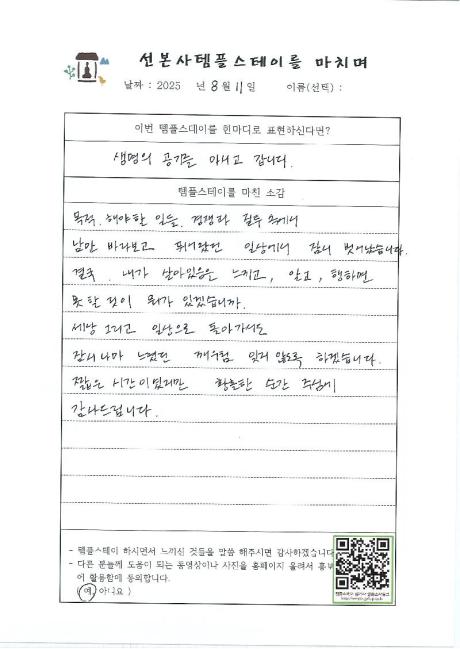 선본사템플스테이를 마치며
날짜 : 2025 년 8 월 11 일 이름(선택) :
이번 템플스테이를 한마디로 표현하신다면?
생명의 공기를 마시고 갑니다.
템플스테이를 마친 소감
목적, 해야할 일들, 경쟁과 질투 속에서
남만 바라보고 뛰어왔던 일상에서 잠시 벗어났습니다.
결국, 내가 살아있음은 느끼고, 알고, 행하면
못 할 것이 뭐가 있겠습니까.
세상 그리고 일상으로 돌아가서도
잠시나마 느꼈던 깨우침 잊지 않도록 하겠습니다.
짧은 시간이였지만 황홀한 순간 주심에
감사드립니다.
- 템플스테이 하시면서 느끼신 것들을 말씀 해주시면 감사하겠습니다
- 다른 분들께 도움이 되는 동영상이나 사진을 홈페이지 올려서 홍보
어 활용함에 동의합니다.
( 예, 아니요 )